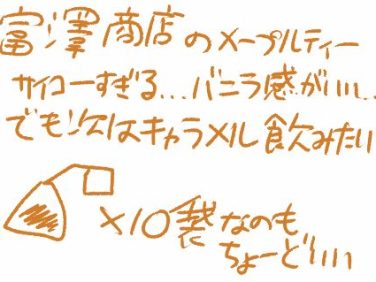 富澤商店のメープルティー
サイコーすぎる...バニラ感がいい..
でも次はキャラメル飲みたい
×10袋なのも
ちょーどいい